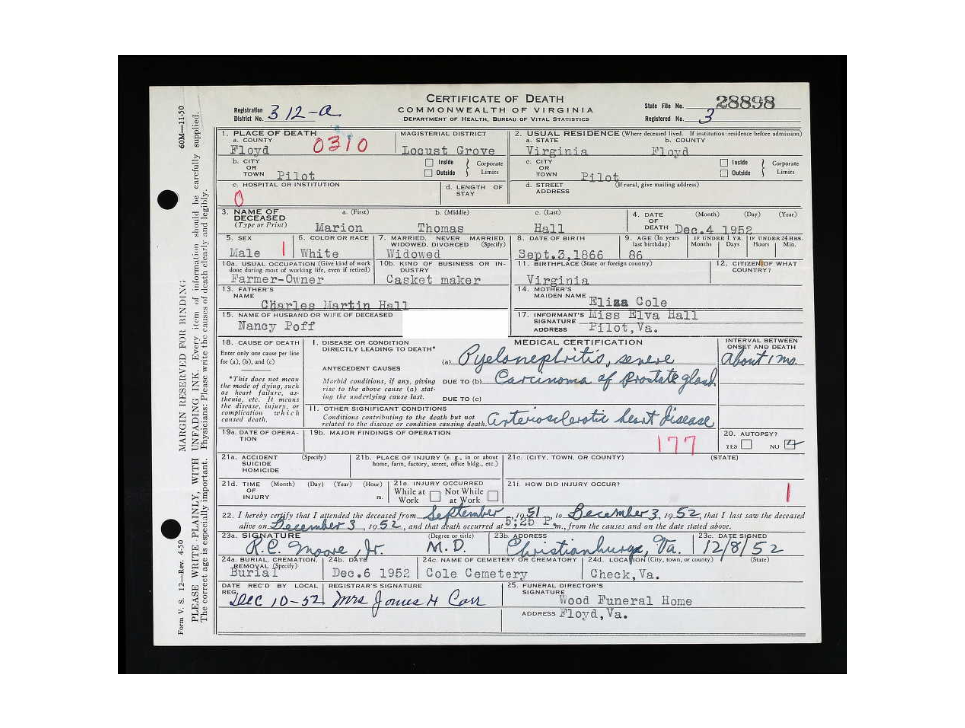 CERTIFICATE OF DEATH
COMMONWEALTH OF VIRGINIA
DEPARTMENT OF HEALTH, BUREAU OF VITAL STATISTICS
Registration District No. 312-a
State File No. 28898
Registered No. 3
1. PLACE OF DEATH
a. COUNTY Floyd 0310
MAGISTERIAL DISTRICT Locust Grove
2. USUAL RESIDENCE (Where deceased lived. If institution: residence before admission)
a. STATE Virginia
b. COUNTY Floyd
b. CITY OR TOWN Pilot
Inside Outside Corporate Limits
c. CITY OR TOWN Pilot
Inside Outside Corporate Limits
c. HOSPITAL OR INSTITUTION
0
d. LENGTH OF STAY
d. STREET ADDRESS (If rural, give mailing address)
3. NAME OF DECEASED (Type or Print)
a. (First) Marion
b. (Middle) Thomas
c. (Last) Hall
4. DATE OF DEATH (Month) (Day) (Year) Dec.4 1952
5. SEX Male 1
6. COLOR OR RACE White
7. MARRIED, NEVER MARRIED, WIDOWED, DIVORCED (Specify) Widowed
8. DATE OF BIRTH Sept.3,1866
9. AGE (In years last birthday) 86
IF UNDER 1 YR. Months Days
IF UNDER 24 HRS. Hours Min.
10a. USUAL OCCUPATION (Give kind of work done during most of working life, even if retired) Farmer-Owner
10b. KIND OF BUSINESS OR INDUSTRY Casket maker
11. BIRTHPLACE (State or foreign country) Virginia
12. CITIZEN OF WHAT COUNTRY?
13. FATHER'S NAME Charles Martin Hall
14. MOTHER'S MAIDEN NAME Eliza Cole
15. NAME OF HUSBAND OR WIFE OF DECEASED Nancy Poff
17. INFORMANT'S SIGNATURE Miss Elva Hall
ADDRESS Pilot,Va.
18. CAUSE OF DEATH
Enter only one cause per line for (a), (b), and (c)
*This does not mean the mode of dying, such as heart failure, asthenia, etc. It means the disease, injury, or complication which caused death.
MEDICAL CERTIFICATION
INTERVAL BETWEEN ONSET AND DEATH
I. DISEASE OR CONDITION DIRECTLY LEADING TO DEATH*
(a) Pyelonephritis, severe
About 1 mo
ANTECEDENT CAUSES
Morbid conditions, if any, giving rise to the above cause (a) stating the underlying cause last.
DUE TO (b) Carcinoma of Prostate gland
DUE TO (c)
II. OTHER SIGNIFICANT CONDITIONS
Conditions contributing to the death but not related to the disease or condition causing death.
arteriosclerotic heart disease
19a. DATE OF OPERATION
19b. MAJOR FINDINGS OF OPERATION
177
20. AUTOPSY?
YES NO
21a. ACCIDENT SUICIDE HOMICIDE (Specify)
21b. PLACE OF INJURY (e. g., in or about home, farm, factory, street, office bldg., etc.)
21c. (CITY, TOWN, OR COUNTY) (STATE)
21d. TIME OF INJURY (Month) (Day) (Year) (Hour) m.
21e. INJURY OCCURRED
While at Work Not While at Work
21f. HOW DID INJURY OCCUR?
1
22. I hereby certify that I attended the deceased from September 1951 to December 3, 1952, that I last saw the deceased
alive on December 3, 1952, and that death occurred at 5:25 P m., from the causes and on the date stated above.
23a. SIGNATURE R.C. Moore, Jr.
(Degree or title) M.D.
23b. ADDRESS Christiansburg, Va.
23c. DATE SIGNED 12/8/52
24a. BURIAL, CREMATION, REMOVAL (Specify) Burial
24b. DATE Dec.6 1952
24c. NAME OF CEMETERY OR CREMATORY Cole Cemetery
24d. LOCATION (City, town, or county) (State) Check,Va.
DATE REC'D BY LOCAL REG. Dec 10-52
REGISTRAR'S SIGNATURE Mrs James H Carr
25. FUNERAL DIRECTOR'S SIGNATURE Wood Funeral Home
ADDRESS Floyd,Va.
Form V. S. 12—Rev. 4-50 MARGIN RESERVED FOR BINDING 60M—11-50
PLEASE WRITE PLAINLY, WITH UNFADING INK. Every item of information should be carefully supplied.
The correct age is especially important. Physicians: Please write the causes of death clearly and legibly.